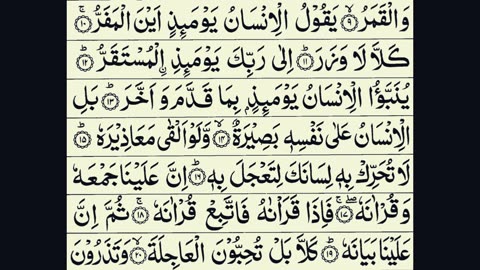 وَالْقَمَرُ ۙ﴿۹﴾ يَقُوْلُ الْاِنْسَانُ يَوْمَئِذٍ اَيْنَ الْمَفَرُّ ۚ﴿۱۰﴾
كَلَّا لَا وَزَرَ ؕ﴿۱۱﴾ اِلٰى رَبِّكَ يَوْمَئِذِ ۨالْمُسْتَقَرُّ ؕ﴿۱۲﴾
يُنَبَّؤُا الْاِنْسَانُ يَوْمَئِذٍۭ بِمَا قَدَّمَ وَ اَخَّرَ ؕ﴿۱۳﴾ بَلِ
الْاِنْسَانُ عَلٰى نَفْسِهٖ بَصِيْرَةٌ ۙ﴿۱۴﴾ وَّلَوْ اَلْقٰى مَعَاذِيْرَهٗ ؕ﴿۱۵﴾
لَا تُحَرِّكْ بِهٖ لِسَانَكَ لِتَعْجَلَ بِهٖ ؕ﴿۱۶﴾ اِنَّ عَلَيْنَا جَمْعَهٗ
وَ قُرْاٰنَهٗ ۚۖ﴿۱۷﴾ فَاِذَا قَرَاْنٰهُ فَاتَّبِعْ قُرْاٰنَهٗ ۚ﴿۱۸﴾ ثُمَّ اِنَّ
عَلَيْنَا بَيَانَهٗ ؕ﴿۱۹﴾ كَلَّا بَلْ تُحِبُّوْنَ الْعَاجِلَةَ ۙ﴿۲۰﴾ وَ تَذَرُوْنَ